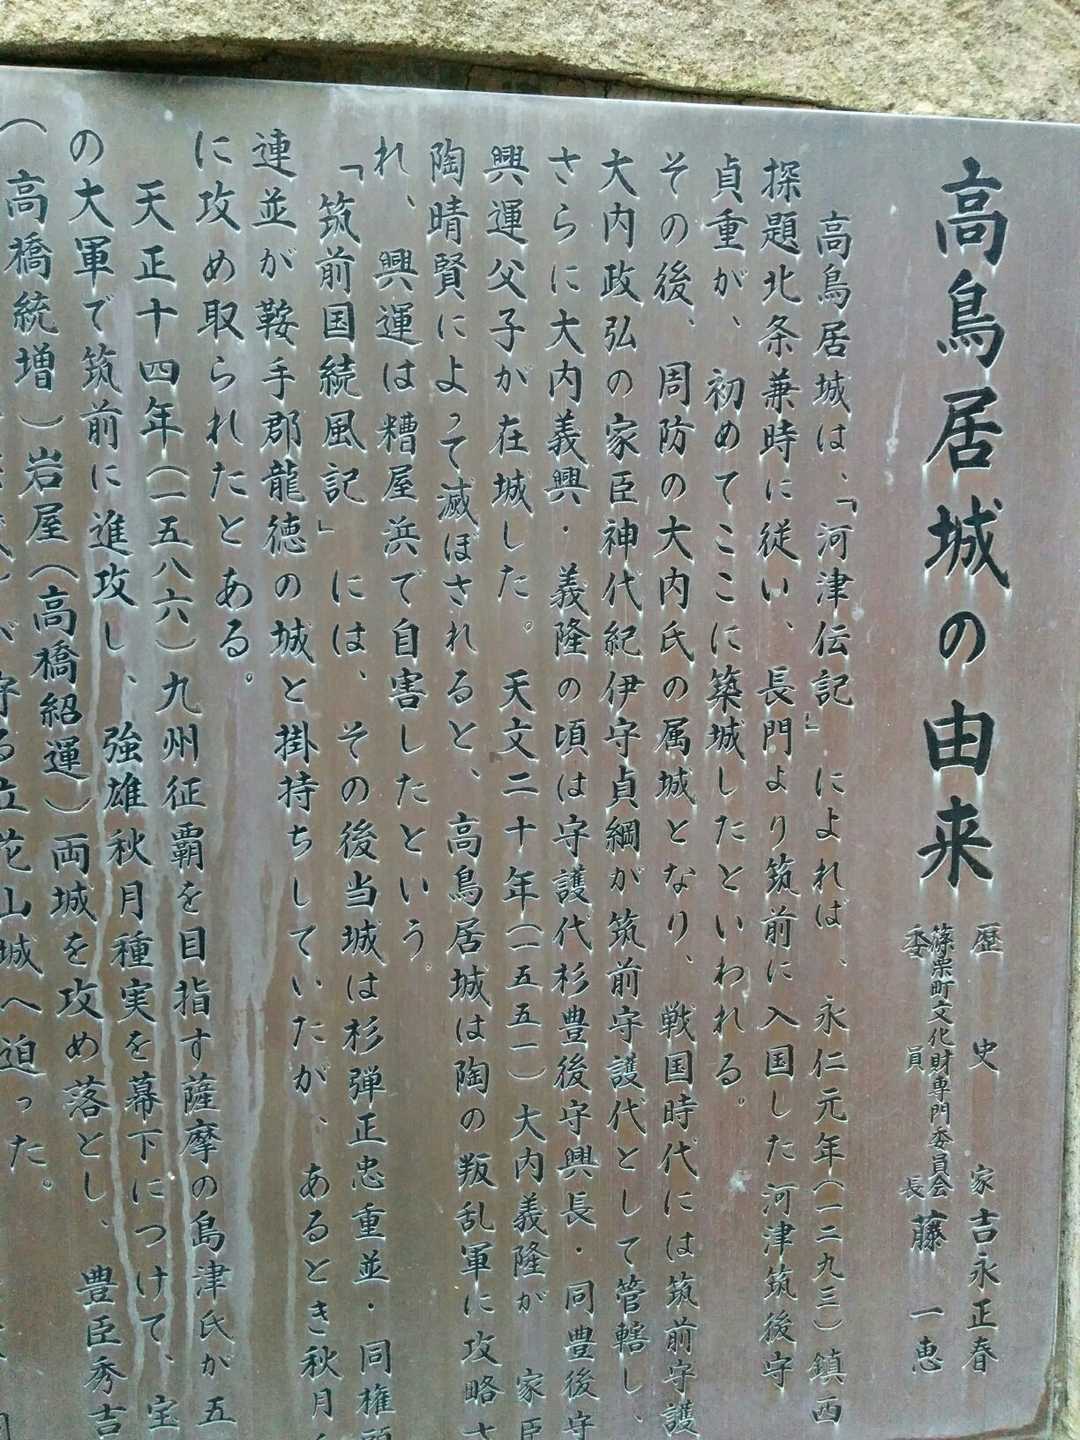 高鳥居城の由来
歴史家 吉永正春
篠栗町文化財専門委員会
委員長 藤 一恵
高鳥居城は、「河津伝記」によれば、永仁元年(一二九三)鎮西
探題北条兼時に従い、長門より筑前に入国した河津筑後守
貞重が、初めてここに築城したといわれる。
その後、周防の大内氏の属城となり、戦国時代には筑前守護
大内政弘の家臣神代紀伊守貞綱が筑前守護代として管轄し、
さらに大内義興・義隆の頃は守護代杉豊後守興長・同豊後守
興運父子が在城した。天文二十年(一五五一)大内義隆が家臣
陶晴賢によって滅ぼされると、高鳥居城は陶の叛乱軍に攻略さ
れ、興運は糟屋浜で自害したという。
「筑前国続風記」には、その後当城は杉弾正忠重並・同権頭
連並が鞍手郡龍徳の城と掛持ちしていたが、あるとき秋月
に攻め取られたとある。
天正十四年(一五八六)九州征覇を目指す薩摩の島津氏が五
の大軍で筑前に進攻し、強雄秋月種実を幕下につけて、宝
(高橋統増)岩屋(高橋紹運)両城を攻め落とし、豊臣秀吉
守る立花山城へ迫った。